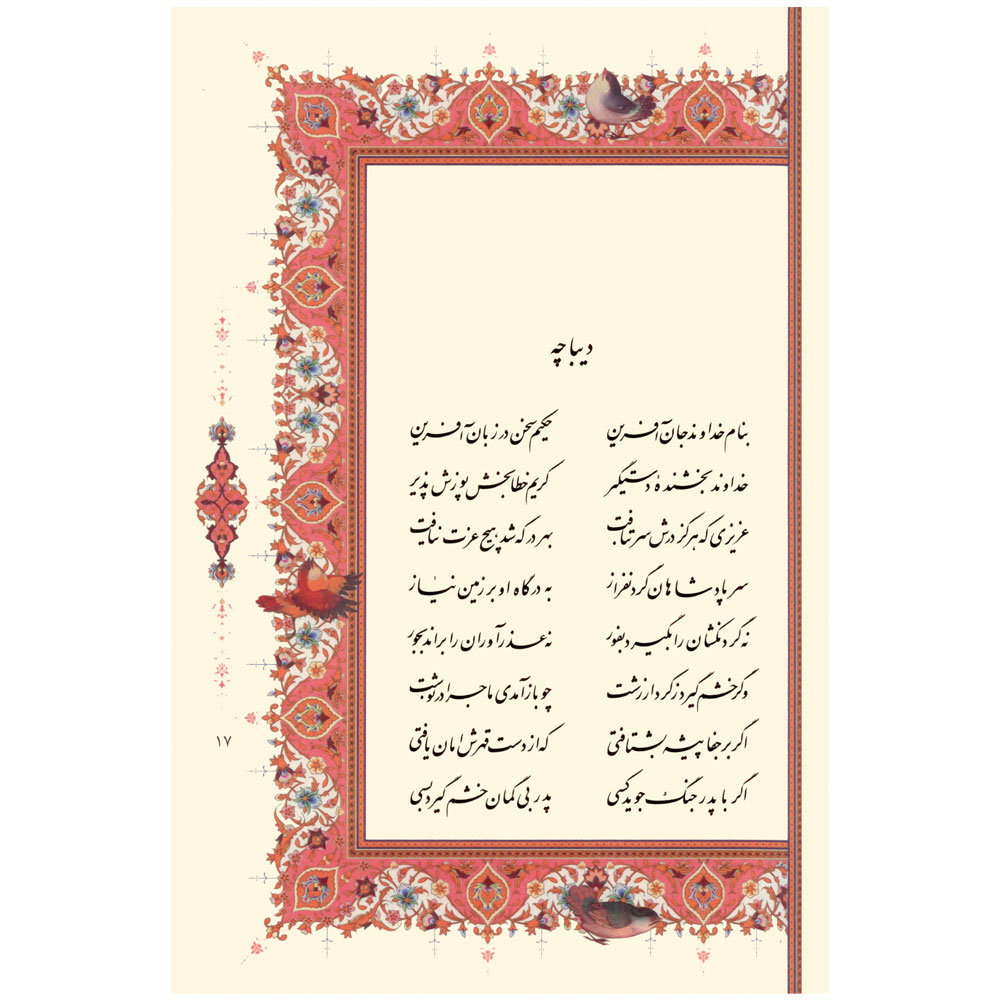 دیباچه
بنام خداوند جان آفرین حکیم سخن در زبان آفرین
خداوند بخشندهٔ دستگیر کریم خطابخش پوزش پذیر
عزیزی که هر کز درش سر بتافت بهر در که شد هیچ عزت نیافت
سر پادشاهان گردنفراز به درگاه او بر زمین نیاز
نه گردنکشان را بگیرد بفور نه عذرآوران را براند بجور
وگر خشم گیرد ز کردار زشت چو بازآمدی ماجرا در نوشت
اگر بر جفا پیشه بشتافتی که از دست قهرش امان یافتی
اگر با پدر جنگ جوید کسی پدر بی گمان خشم گیرد بسی
۱۷